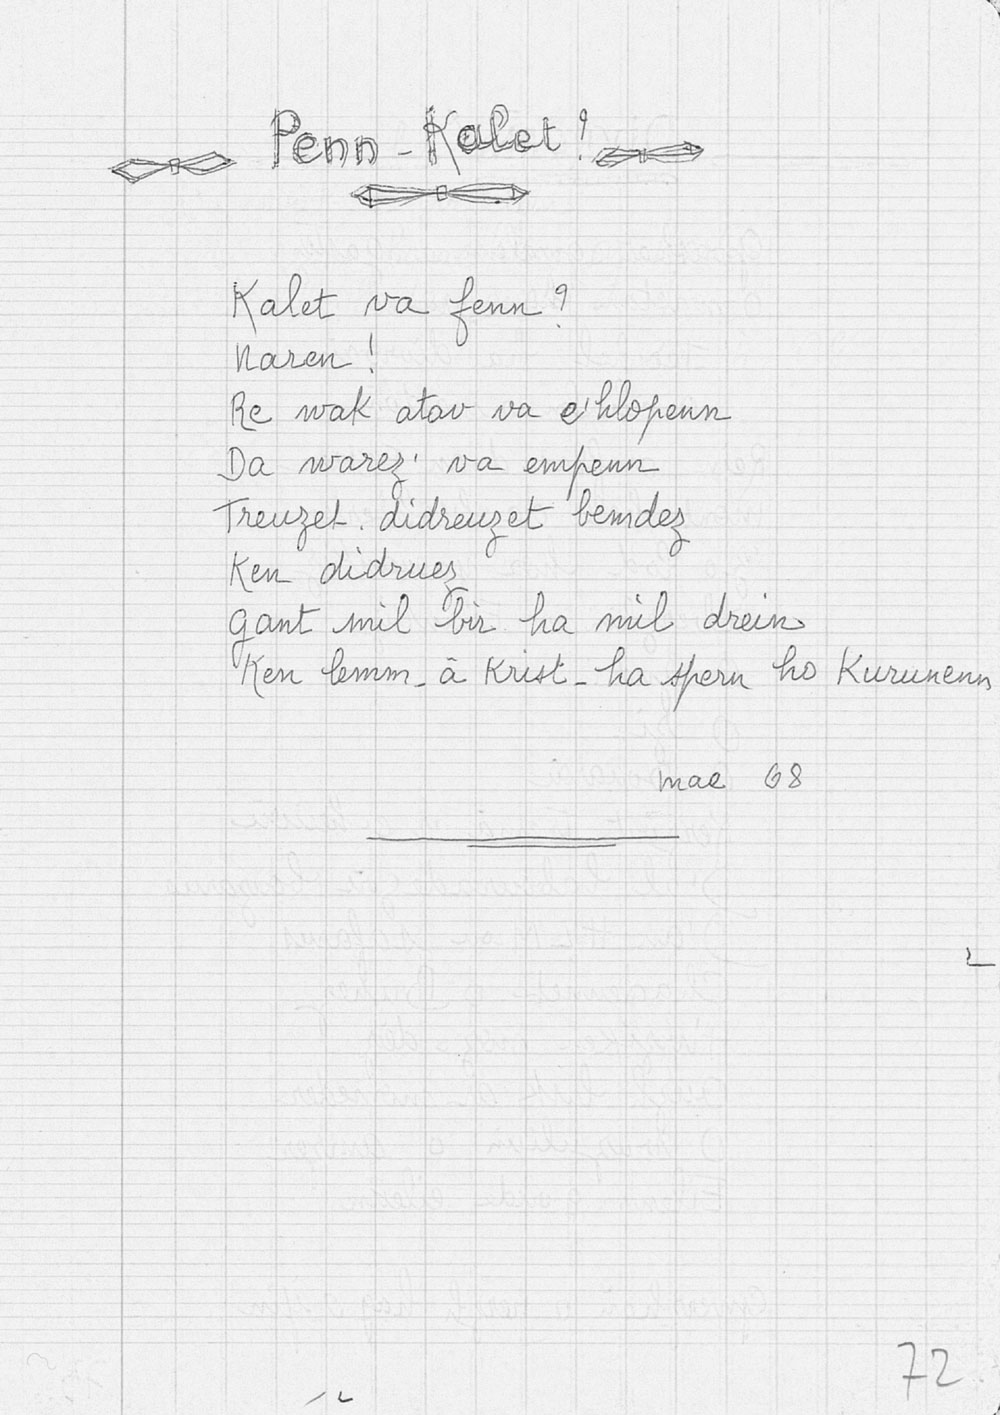 Penn-Kalet !
Kalet va fenn ?
Naren !
Re wak atav va c'hlopenn
Da warez' va empenn
Treuzet. didreuzet bemdez
Ken didruez
gant mil bir ha mil drein
Ken lemm - â Krist - ha spern ho Kurunenn
mae 68
72